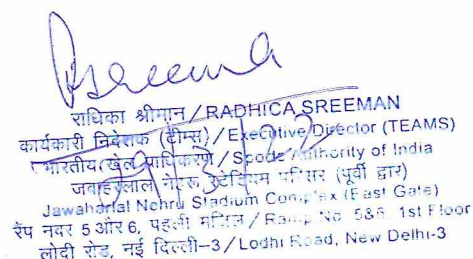 राधिका श्रीमान / RADHICA SREEMAN
कार्यकारी निदेशक (टीम्स) / Executive Director (TEAMS)
भारतीय खेल प्राधिकरण / Authority of India
जवाहरलाल नेहरू स्टेडियम परिसर (पूर्वी द्वार)
Jawaharlal Nehru Stadium Complex (East Gate)
रैंप नवर 5 और 6, पहली मंजिल / Ramp No. 5&6, 1st Floor
लोदी रोड, नई दिल्ली-3 / Lodhi Road, New Delhi-3